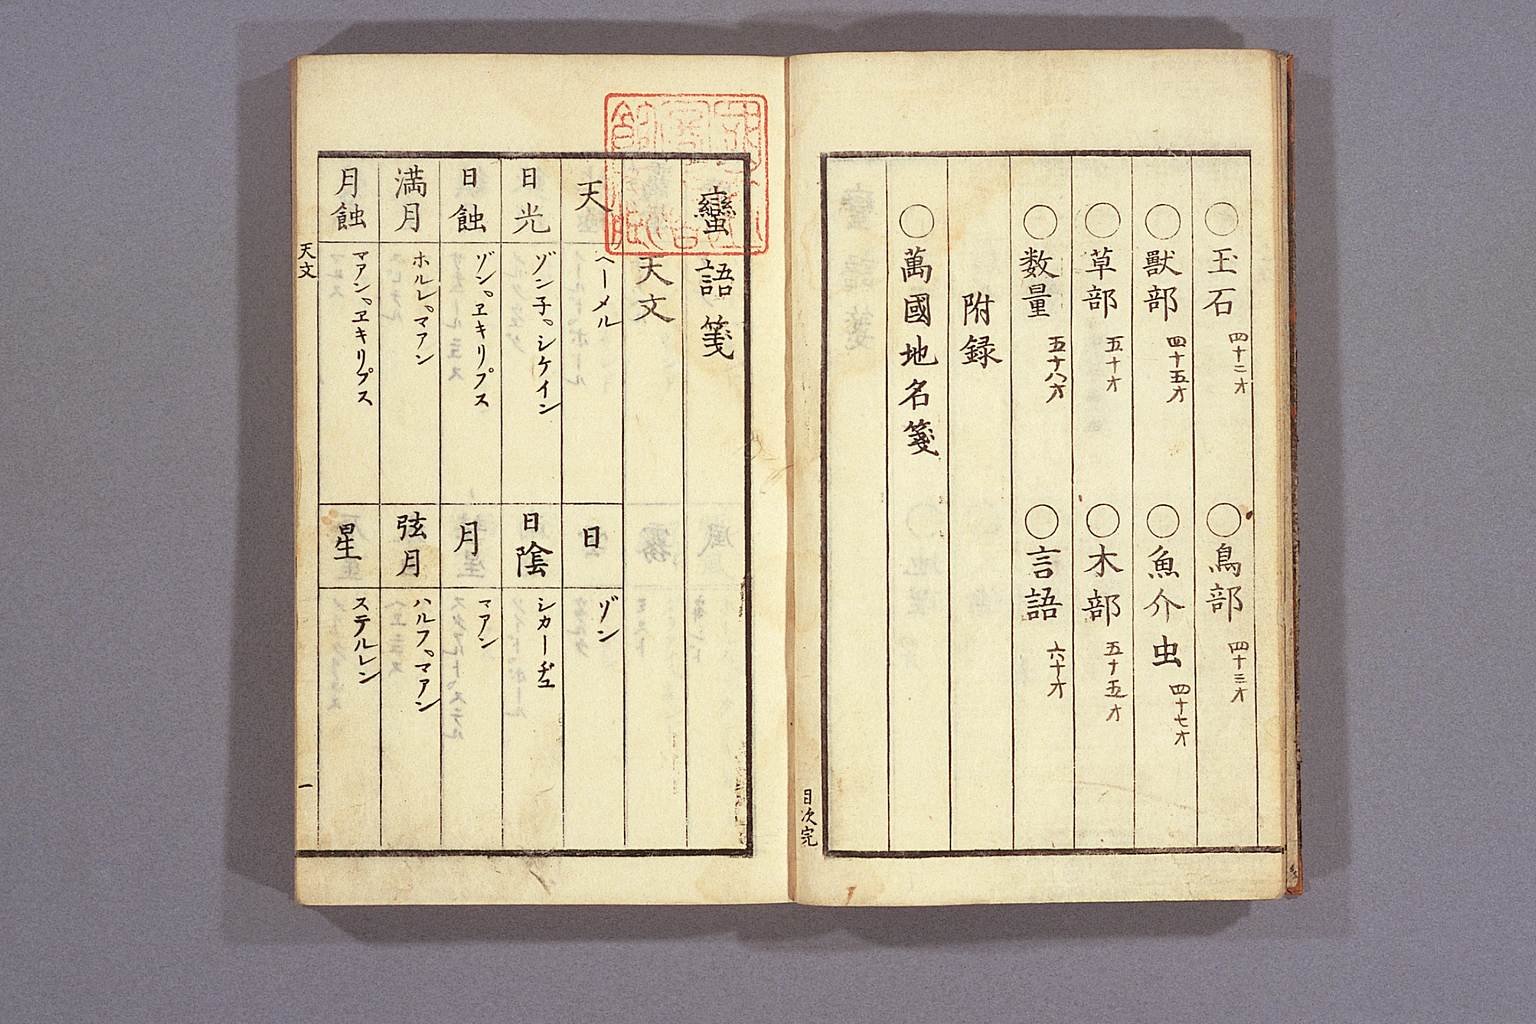 ○玉石 四十二オ
○鳥部 四十三オ
○獸部 四十五オ
○魚介虫 四十七オ
○草部 五十オ
○木部 五十五オ
○数量 五十八オ
○言語 六十オ
附録
○萬國地名箋
目次完
蠻語箋
天文
天 ヘーメル
日 ゾン
日光 ゾン子゜シケイン
日陰 シカーヂュ
日蝕 ゾン゜ヱキリプス
月 マアン
満月 ホルレ゜マアン
弦月 ハルフ゜マアン
月蝕 マアン゜ヱキリプス
星 ステルレン
天文
一